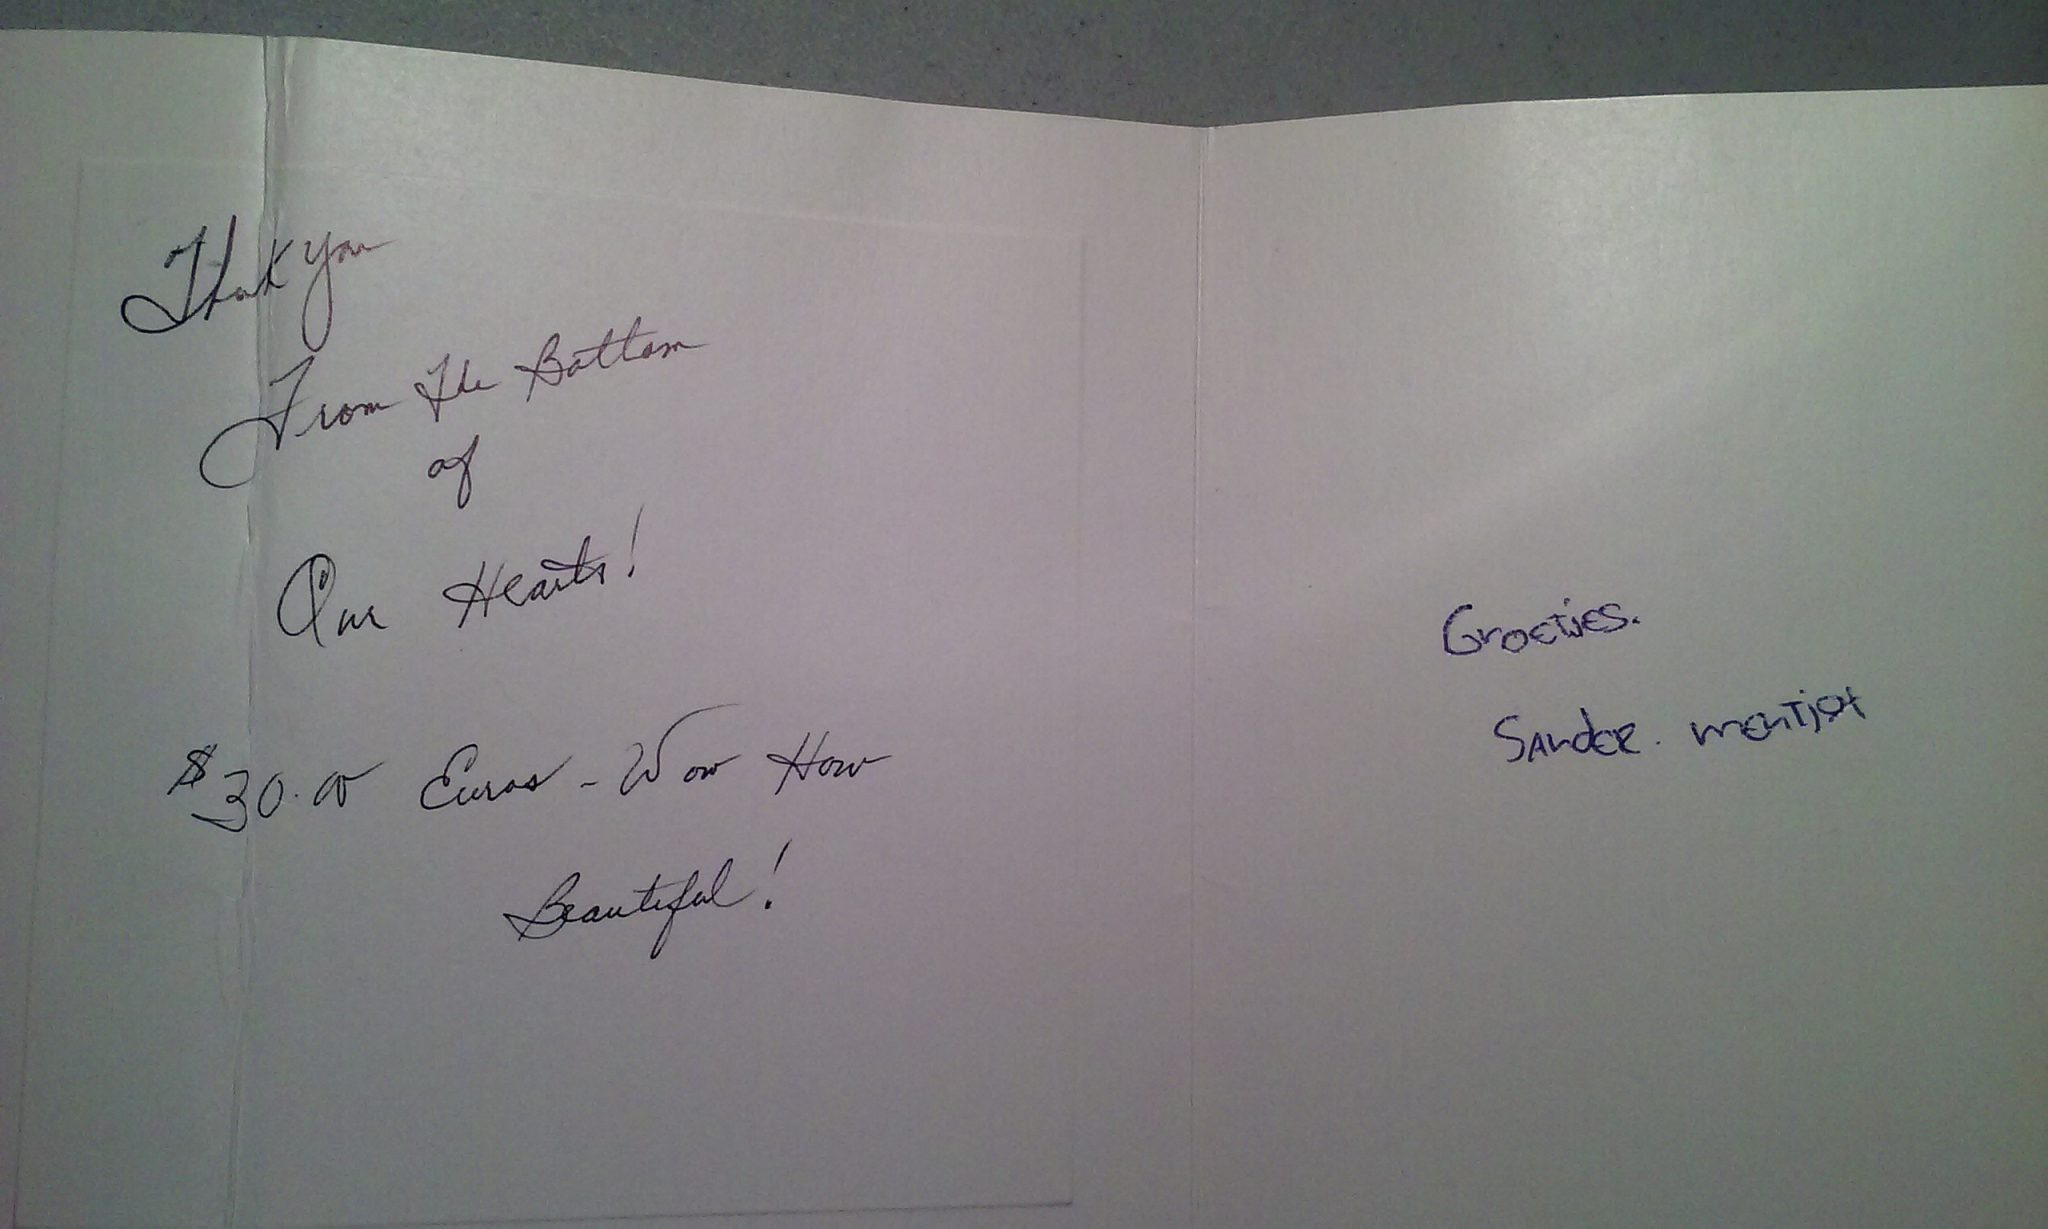 Thank you
From The Bottom
of
Our Hearts!
$30.00 Euros - Wow How
Beautiful!
Groetjes.
Sander.